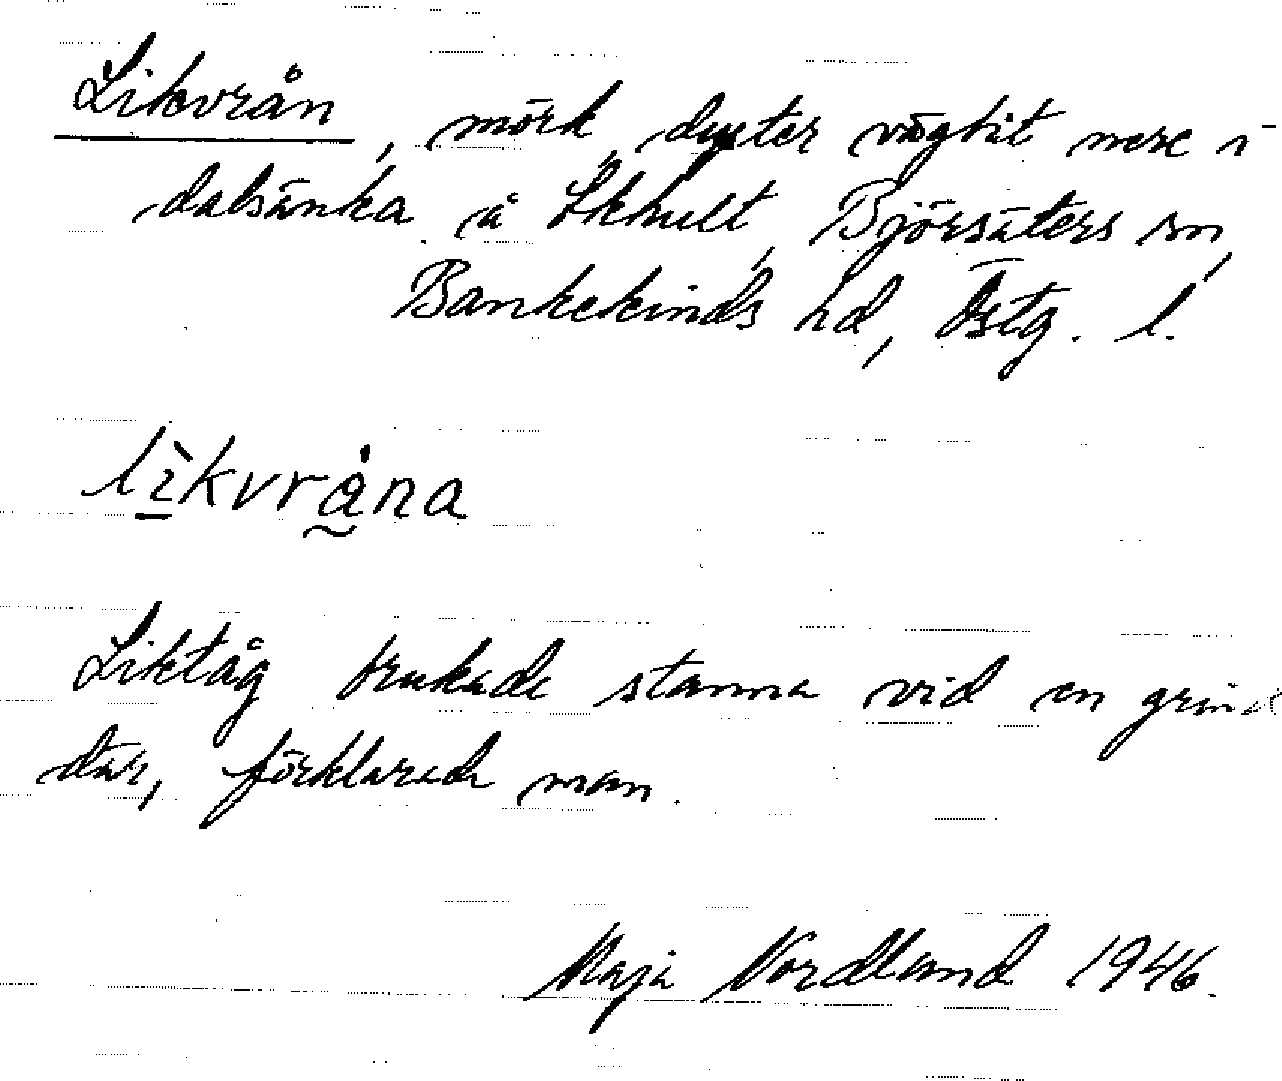 Likvrån, mörk, dyster vägbit nere i
dalsänka å Ekhult, Björsäters sn,
Bankekinds hd, Östg. l.
lìkvråna
Liktåg brukade stanna vid en grind
där, förklarade man.
Maja Nordlund 1946.